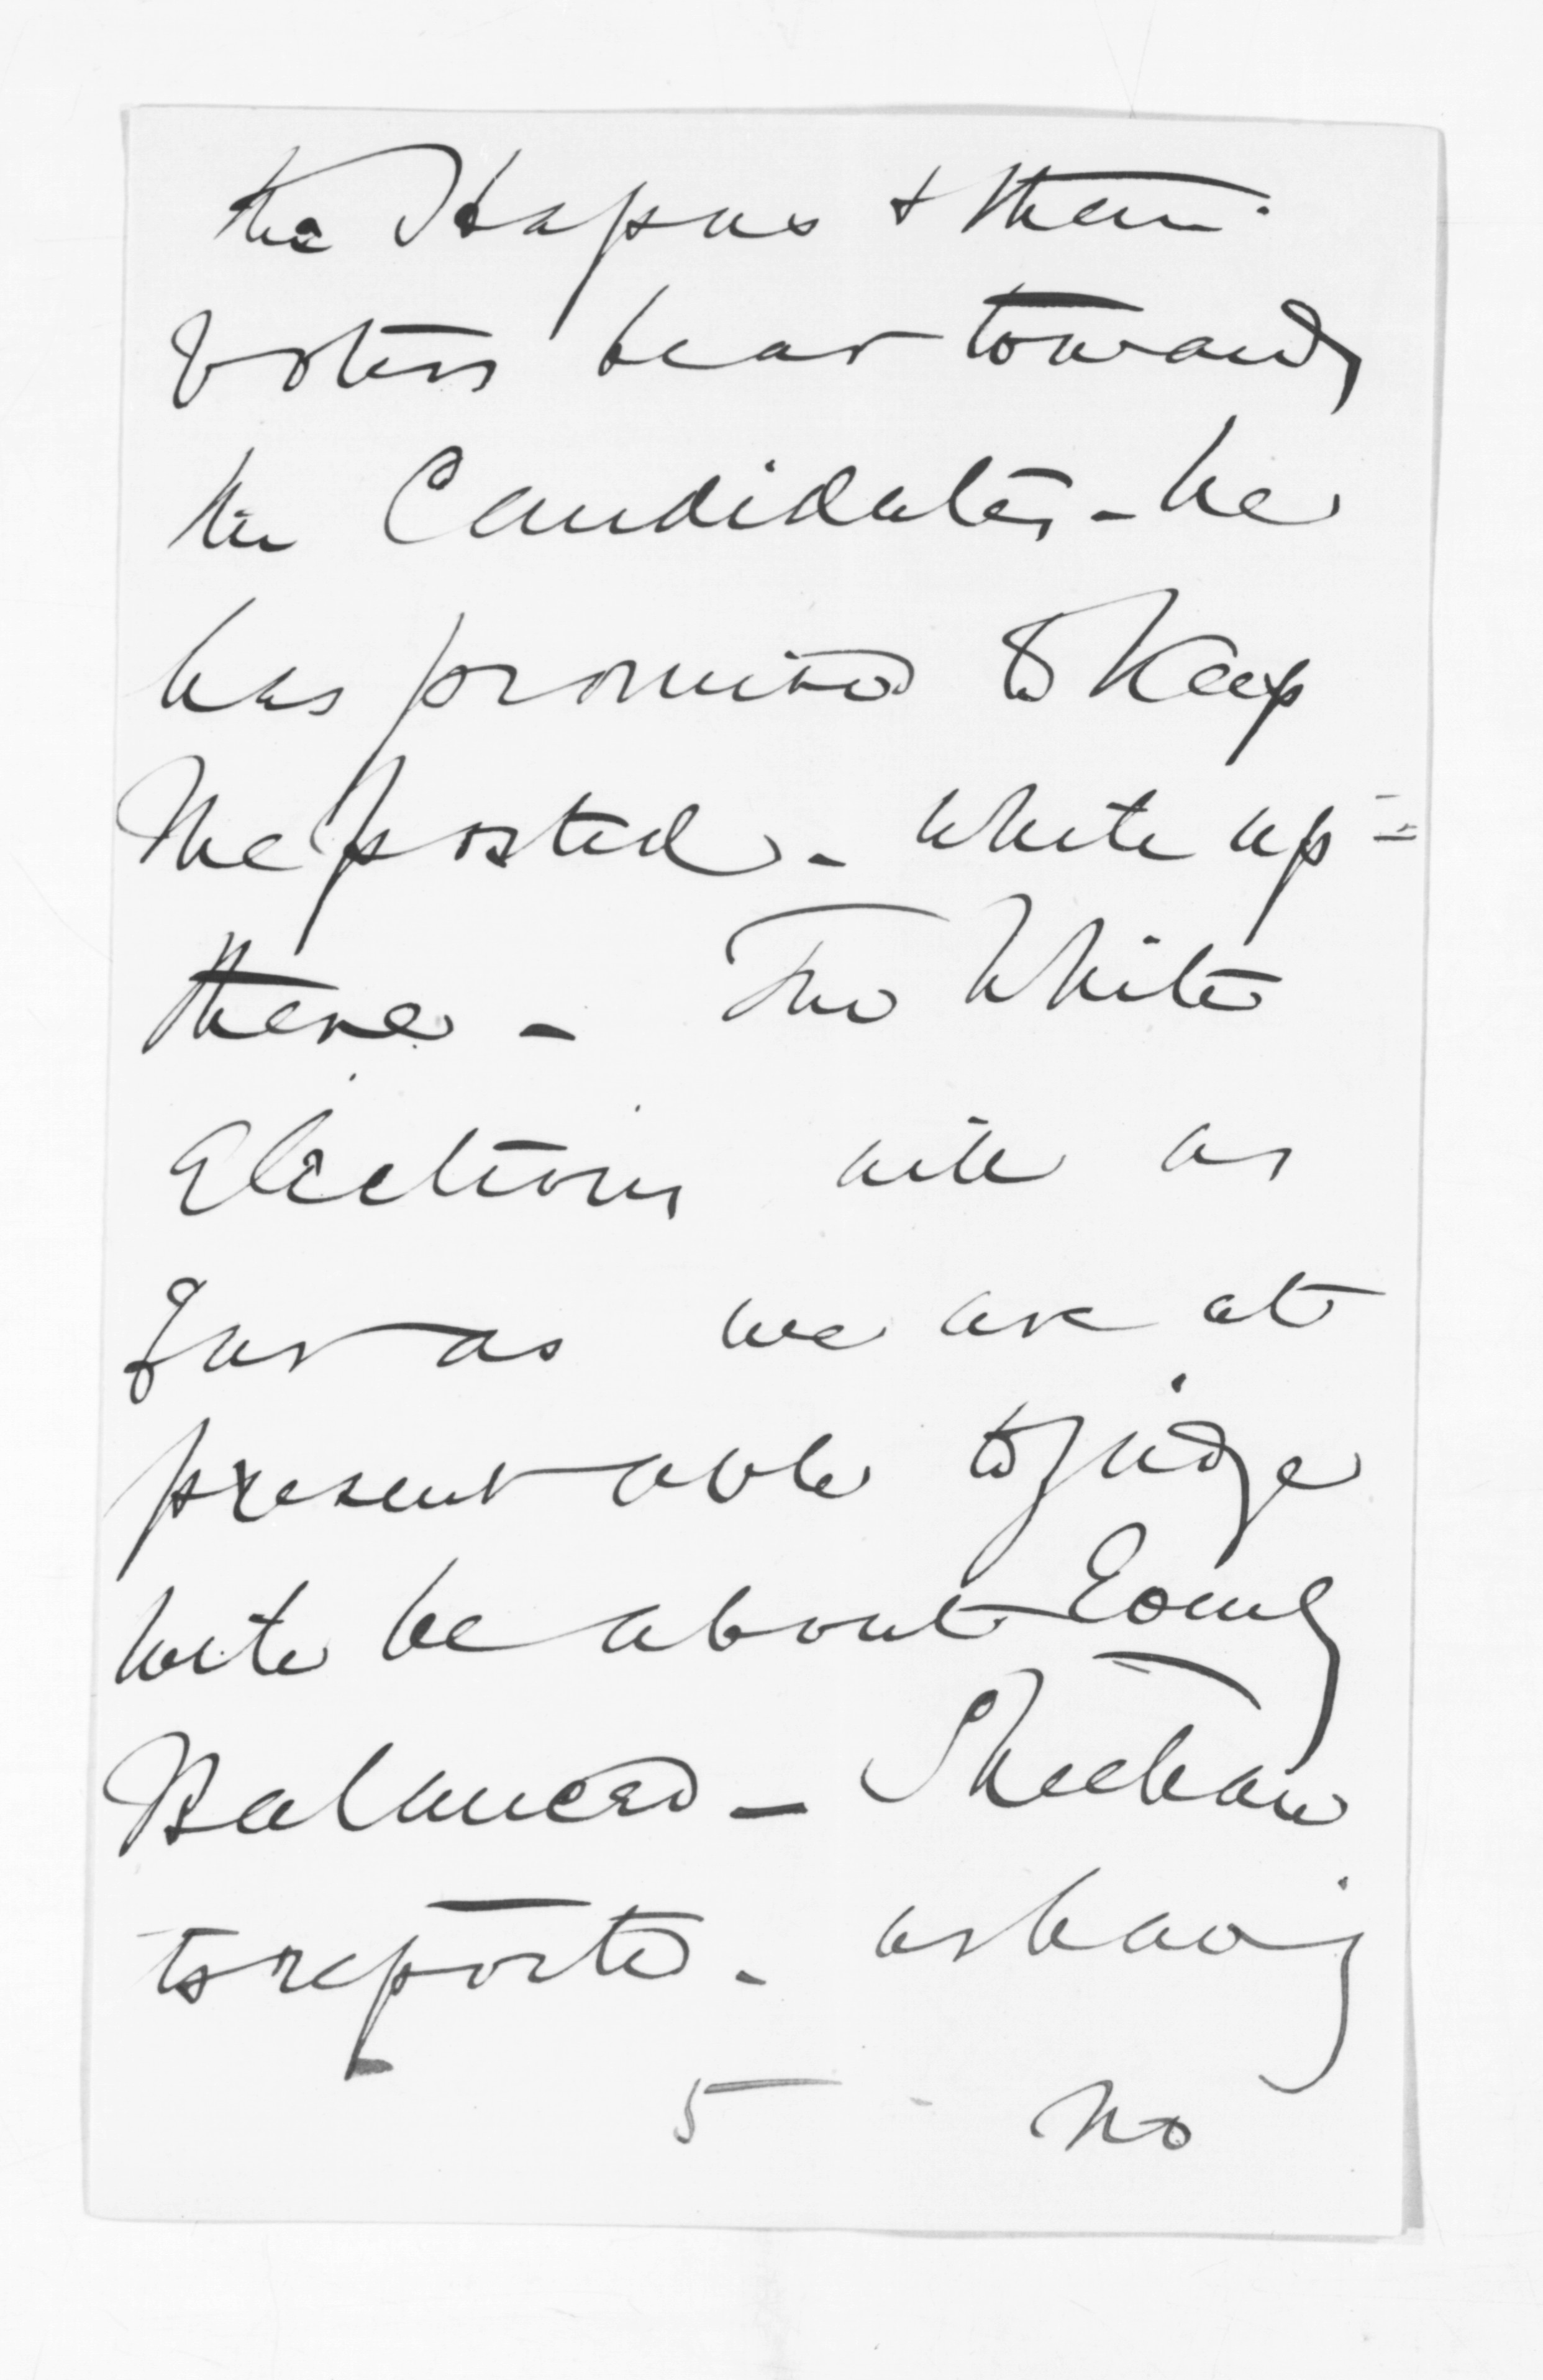 the Hapus & their
voters bear towards
the Candidates - he
has promised to Keep
Me posted - while up =
there - The White
Elections will as
far as we are at
present able to judge
will be about Evenly
Balanced - Sheehan
is reported - as having
5 no